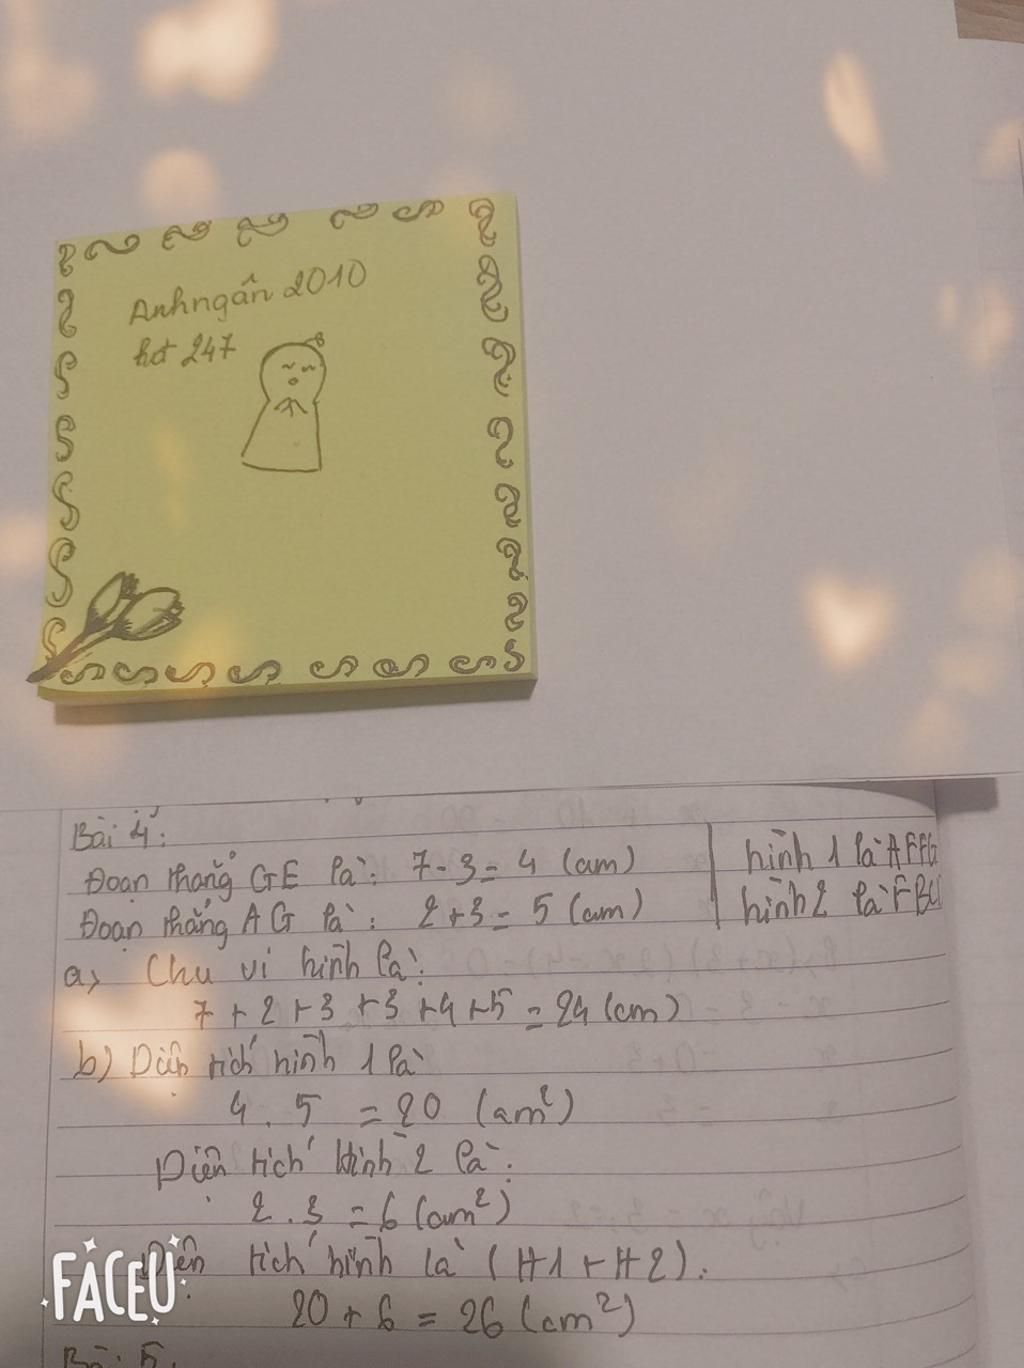 Anhngân 2010
hđt 247
Bài 4:
Đoạn thẳng GE là: 7 - 3 = 4 (cm)
Đoạn thẳng AG là: 2 + 3 = 5 (cm)
hình 1 là
hình 2 là
a, Chu vi hình là:
7 + 2 + 3 + 3 + 4 + 5 = 24 (cm)
b) Diện tích hình 1 là
4 . 5 = 20 (cm²)
Diện tích hình 2 là:
2 . 3 = 6 (cm²)
Diện tích hình là (H1 + H2):
20 + 6 = 26 (cm²)
Bài 5.
FACEU